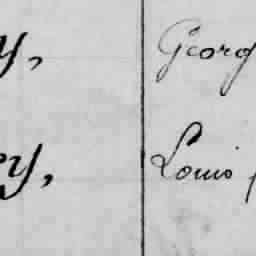 y, Georg
ey, Louis